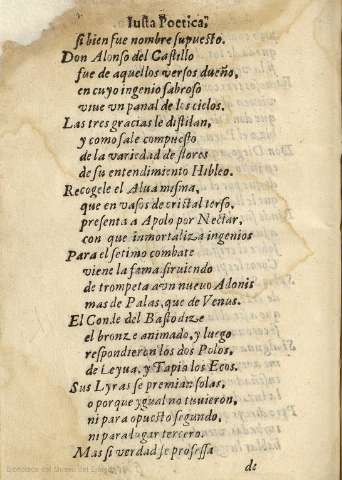 Iusta Poetica,
si bien fue nombre supuesto.
Don Alonso del Castillo
fue de aquellos versos dueño,
en cuyo ingenio sabroso
viue vn panal de los cielos.
Las tres gracias le distilan,
y como sale compuesto
de la variedad de flores
de su entendimiento Hibleo.
Recogele el Alua misma,
que en vasos de cristal terso,
presenta a Apolo por Nectar,
con que inmortaliza ingenios
Para el setimo combate
viene la fama siruiendo
de trompeta a vn nueuo Adonis
mas de Palas, que de Venus.
El Conde del Basto dize
el bronze animado, y luego
respondieron los dos Polos,
de Leyua, y Tapia los Ecos.
Sus Lyras se premian solas,
o porque ygual no tuuieron,
ni para opuesto segundo,
ni para lugar tercero.
Mas si verdad se professa
de
Biblioteca del Museo del Ejército